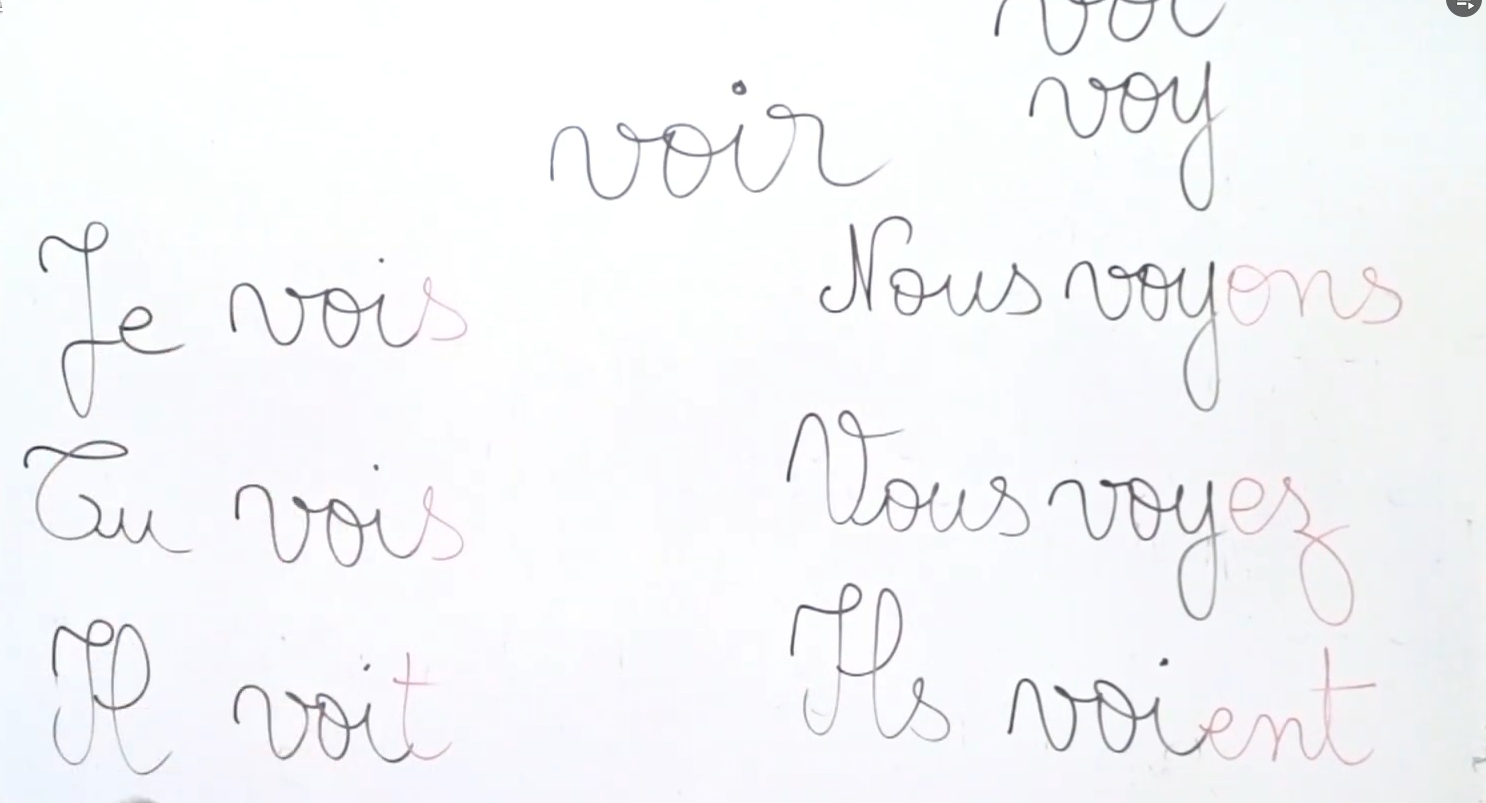 voi
voy
voir
Je vois
Tu vois
Il voit
Nous voyons
Vous voyez
Ils voient